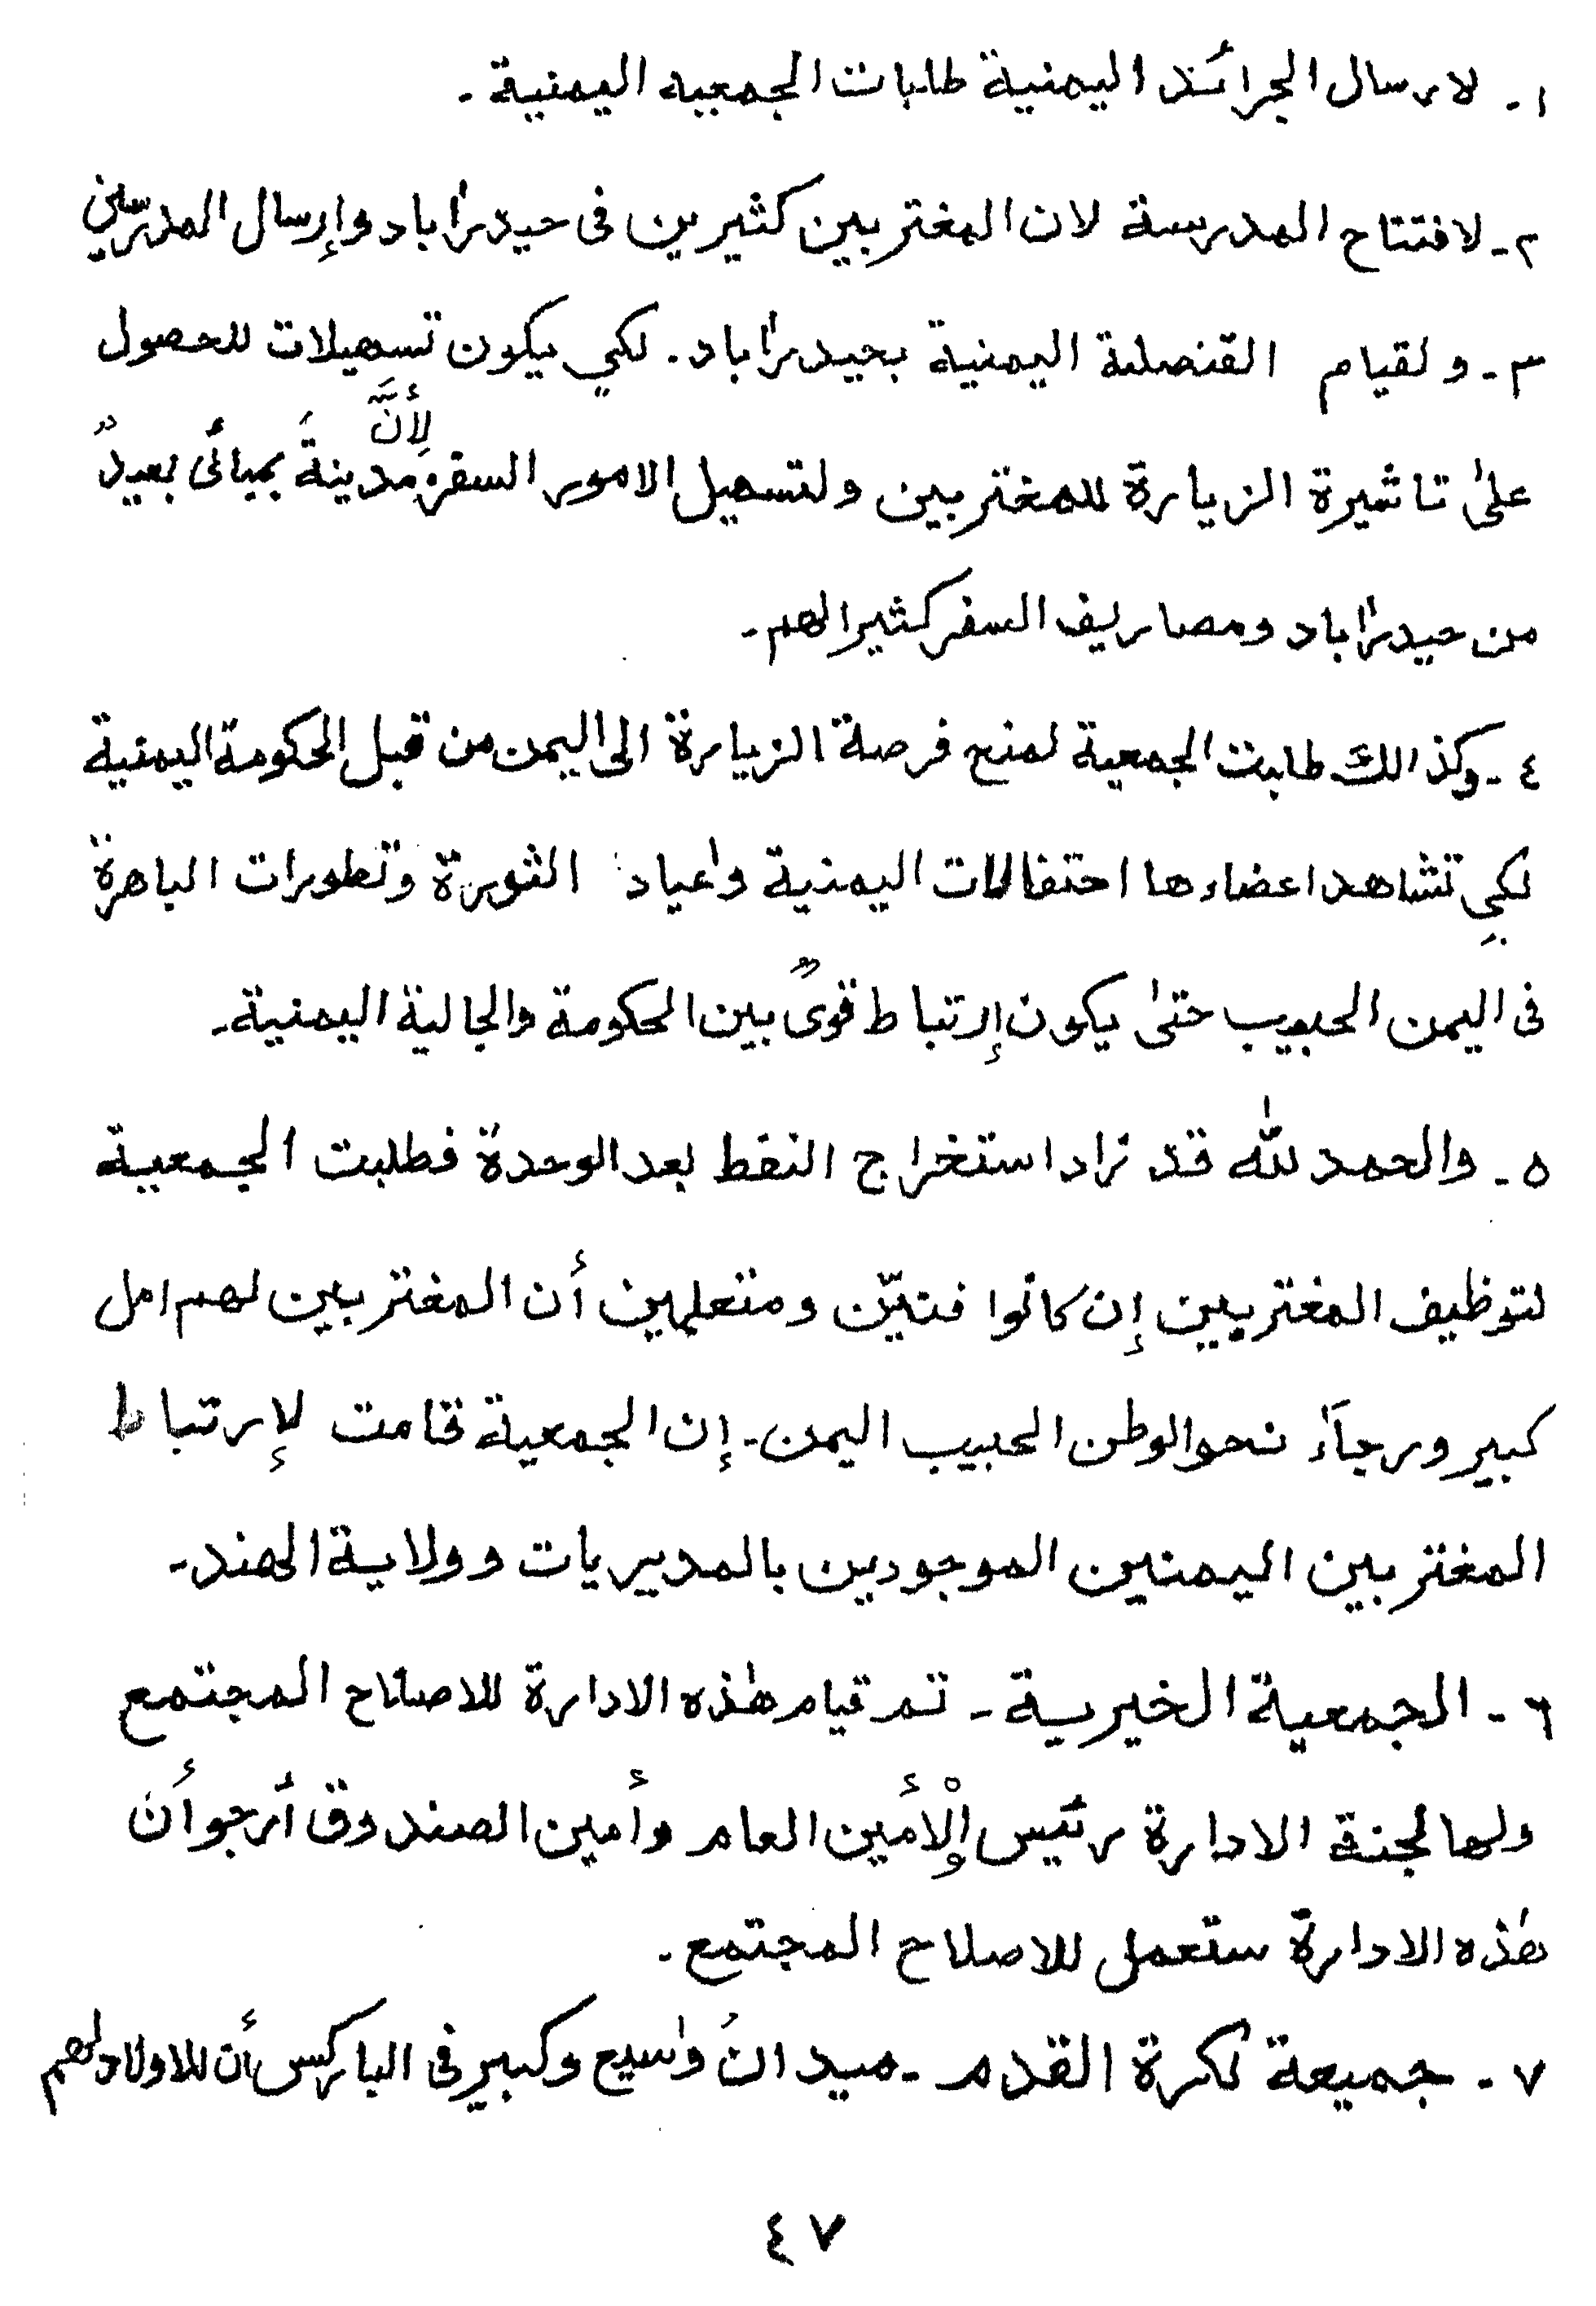 ١- لارسال الجرائد اليمنية طابات الجمعيه اليمنية -
٢- لافتتاح المدرسة لان المغتربين كثيرين فى حيدرآباد وإرسال المدرّسين
٣- ولقيام القنصلية اليمنية بحيدرآباد. لكي يكون تسهيلات للحصول
على تاشيرة الزيارة للمغتربين ولتسهيل الامور السفر لِأنَّ مدينةَ بمبائى بعيدٌ
من حيدرآباد ومصاريف السفر كثيرا لهم-
٤- وكذالك طابت الجمعية لمنح فرصة الزيارة الى اليمن من قبل الحكومة اليمنية
لكي تشاهد اعضاءها احتفالات اليمنية واعياد الثورة وتطورات الباهرة
فى اليمن الحبيب حتىٰ يكون إرتباط قوىٌ بين الحكومة والجالية اليمنية-
٥- والحمد للّٰه قد زاد استخراج النفط بعد الوحدة فطلبت الجمعية
لتوظيف المغتربين إن كانوا فنيّن ومتعلمين أن المغتربين لهم امل
كبير ورجآء نحو الوطن الحبيب اليمن- إن الجمعية قامت لإرتباط
المغتربين اليمنين الموجودين بالمديريات وولاية الهند-
٦- الجمعية الخيرية - تم قيام هٰذه الادارة للاصلاح المجتمع
ولها لجنة الادارة رئيس والْأمين العام وأمين الصندوق أرجو أن
هٰذه الادارة ستعمل للاصلاح المجتمع-
٧- جميعة لكرة القدم - ميدانُ واسيح وكبير فى الباركس أن للاولاد لهم
٤٧